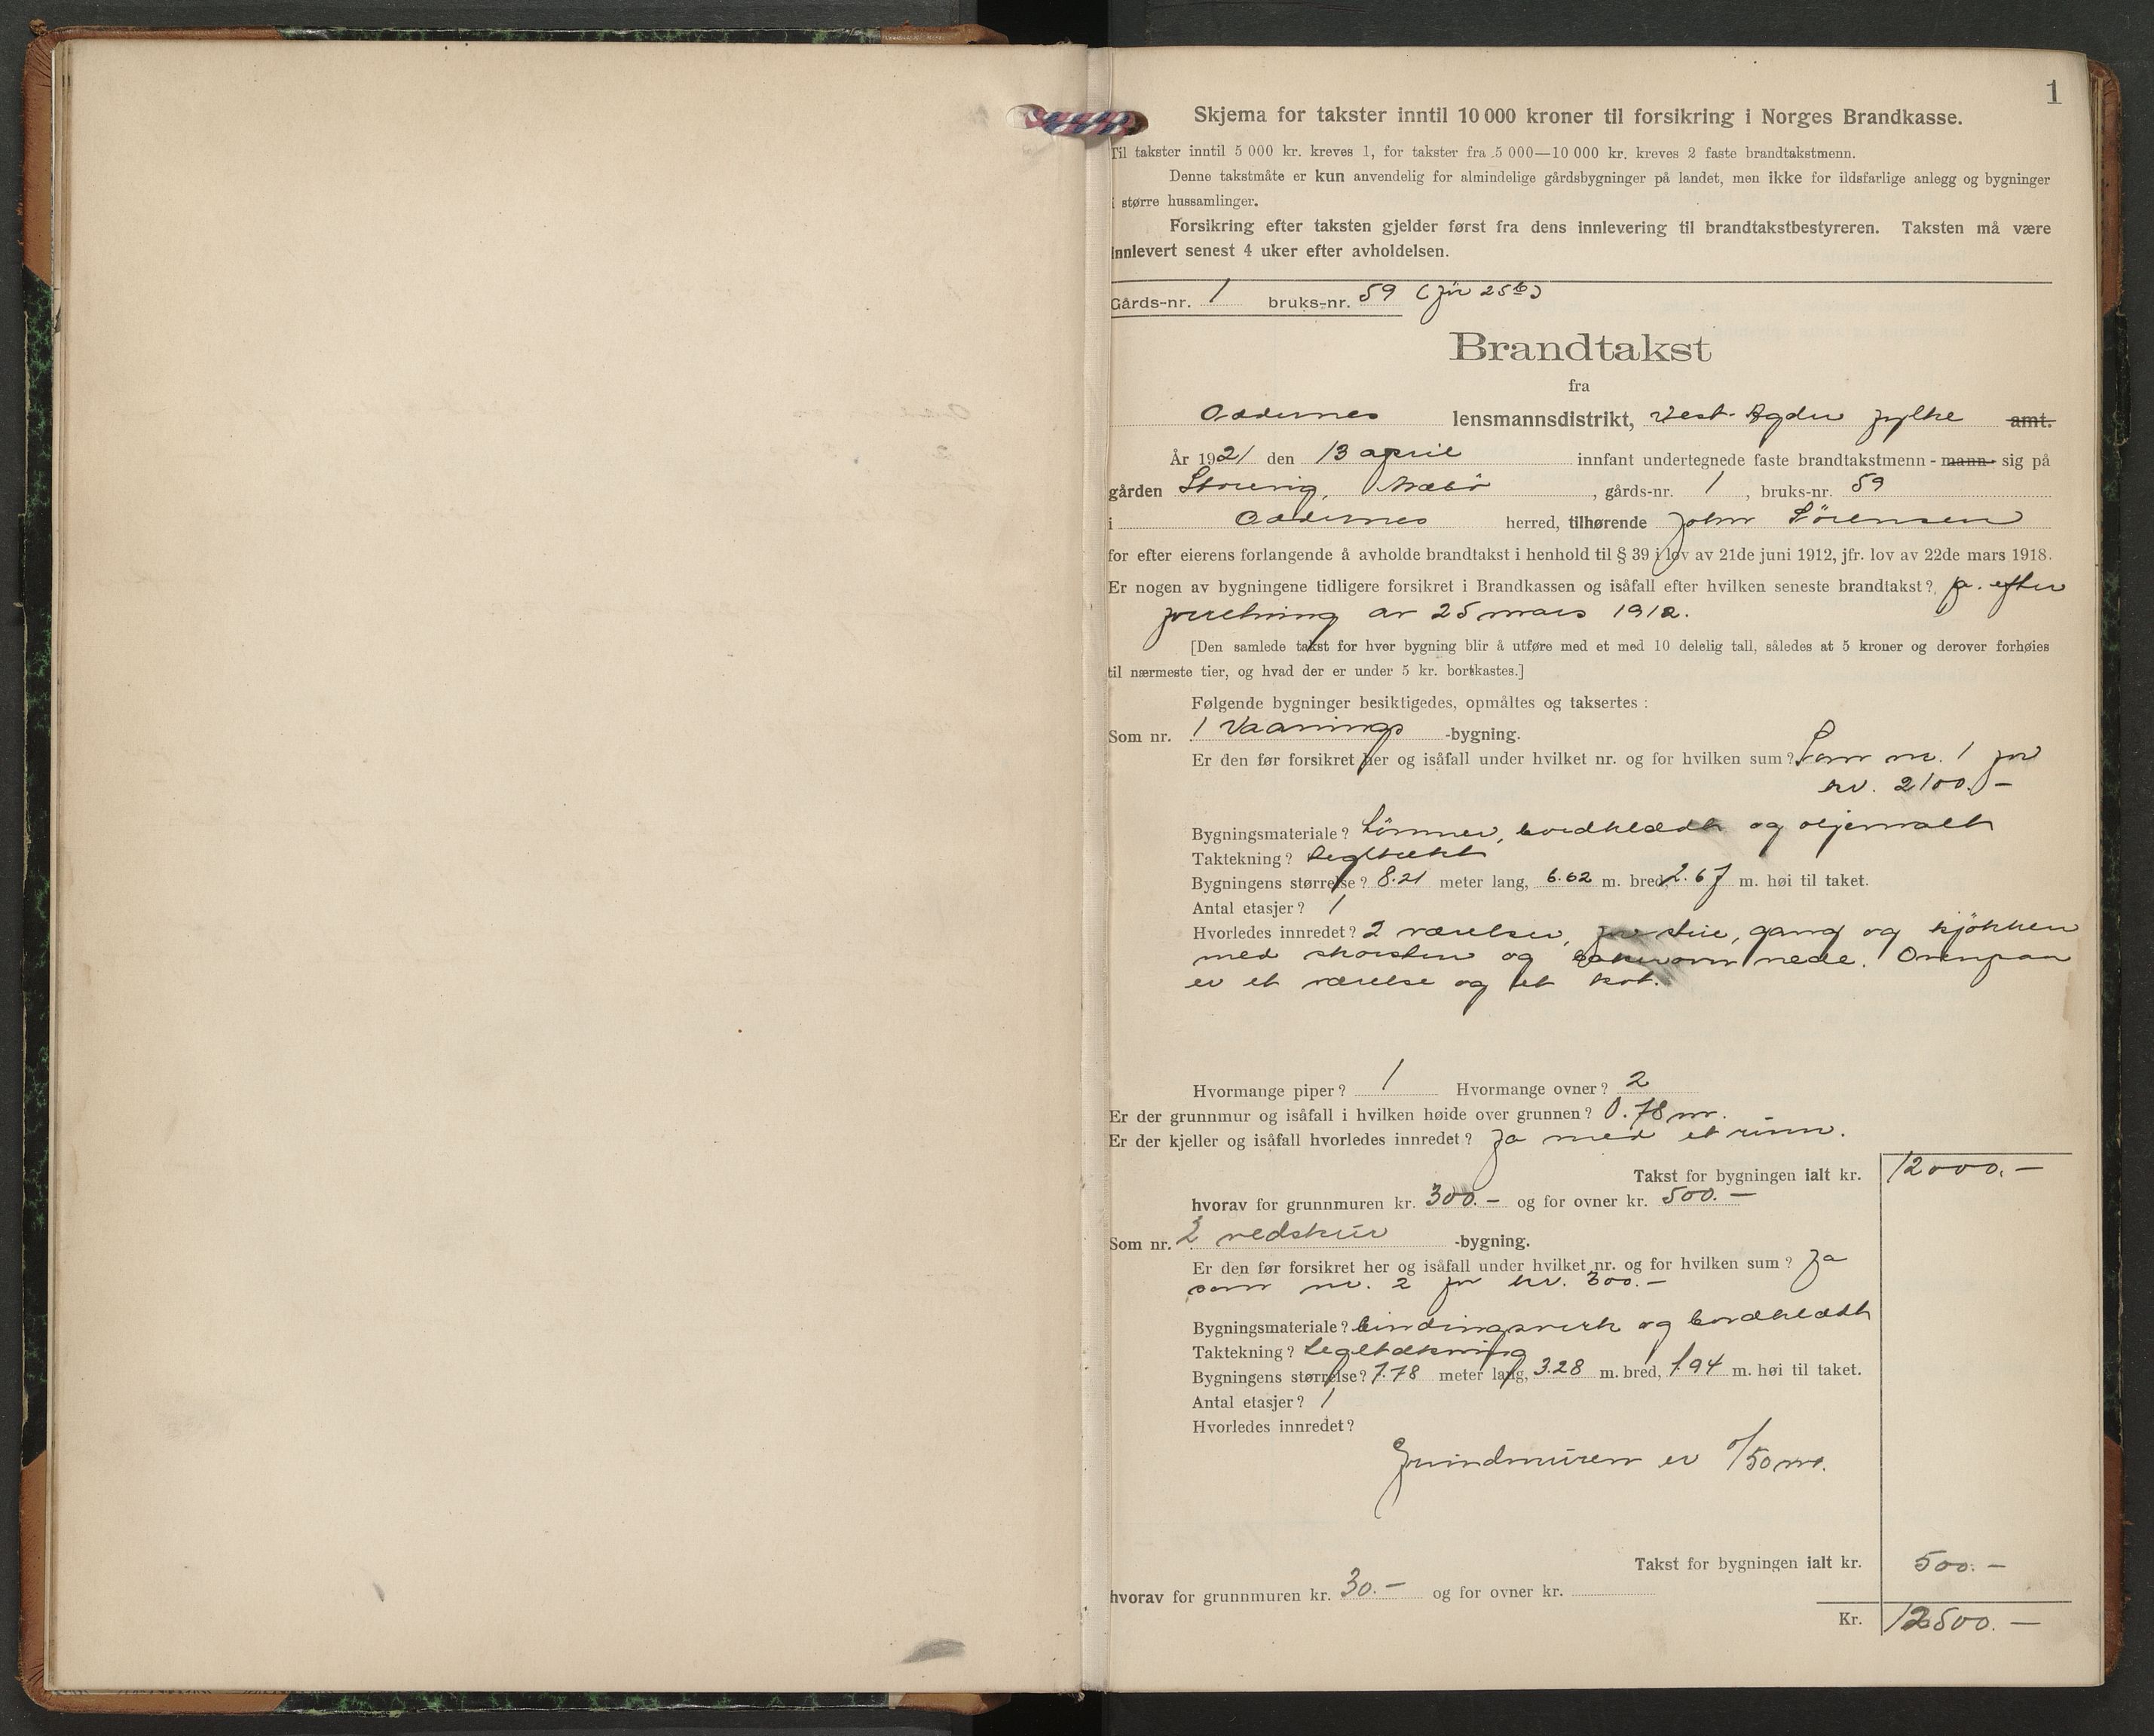 1
Skjema for takster inntil 10 000 kroner til forsikring i Norges Brandkasse.
Til takster inntil 5 000 kr. kreves 1, for takster fra 5 000—10 000 kr. kreves 2 faste brandtakstmenn.
Denne takstmåte er kun anvendelig for almindelige gårdsbygninger på landet, men ikke for ildsfarlige anlegg og bygninger
i større hussamlinger.
Forsikring efter taksten gjelder først fra dens innlevering til brandtakstbestyreren. Taksten må være
innlevert senest 4 uker efter avholdelsen.
Gårds-nr. 1 bruks-nr. 59 (før 25b)
Brandtakst
fra
Oddernes lensmannsdistrikt, Vest-Agder fylke amt.
År 1921 den 13 april innfant undertegnede faste brandtakstmenn - mann sig på
gården , gårds-nr. 1, bruks-nr. 59
i Oddernes herred, tilhørende John Sörensen
for efter eierens forlangende å avholde brandtakst i henhold til § 39 i lov av 21de juni 1912, jfr. lov av 22de mars 1918.
Er nogen av bygningene tidligere forsikret i Brandkassen og isåfall efter hvilken seneste brandtakst? ja. efter
forretning av 25 mars 1912.
[Den samlede takst for hver bygning blir å utføre med et med 10 delelig tall, således at 5 kroner og derover forhøies
til nærmeste tier, og hvad der er under 5 kr. bortkastes.]
Følgende bygninger besiktigedes, opmåltes og taksertes :
Som nr. 1 Vaanings -bygning.
Er den før forsikret her og isåfall under hvilket nr. og for hvilken sum? Som nr. 1 for
kr. 2100.-
Bygningsmateriale? tömmer, bordklædt og oljemalt
Taktekning? teglstekt
Bygningens størrelse? 8.21 meter lang, 6.62 m. bred, 2.67 m. høi til taket.
Antal etasjer? 1
Hvorledes innredet? 2 værelser, stue, gang og kjökken
med skorsten og bakerovn nede. Ovenpaa
er et værelse og et kot.
Hvormange piper? 1 Hvormange ovner? 2
Er der grunnmur og isåfall i hvilken høide over grunnen? 0.78 m.
Er der kjeller og isåfall hvorledes innredet? Ja med et rum.
Takst for bygningen ialt kr. 12000.-
hvorav for grunnmuren kr. 300.- og for ovner kr. 500.-
Som nr. 2 vedskur -bygning.
Er den før forsikret her og isåfall under hvilket nr. og for hvilken sum? Ja
som nr. 2 for kr. 300.-
Bygningsmateriale? bindingsverk og bordklædt
Taktekning? teglstækning
Bygningens størrelse? 7.78 meter lang, 3.28 m. bred, 1.94 m. høi til taket.
Antal etasjer? 1
Hvorledes innredet?
Grundmuren er 0/50 m.
Takst for bygningen ialt kr. 500.-
hvorav for grunnmuren kr. 30.- og for ovner kr.
Kr. 12500.-